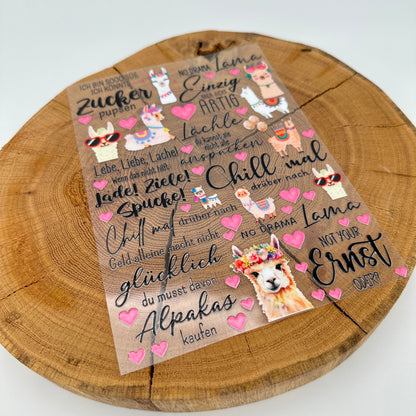 ICH BIN SOOO SÜß
ICH KÖNNTE
Zucker
pupsen
NO DRAMA Lama
Einzig
ARTIG
Lächle
du kannst sie
nicht alle
anspucken
Lebe, Liebe, Lache!
Wenn das nicht hilft,
Lade! Ziele!
Spucke!
Chill mal
drüber nach
Chill mal drüber nach
Geld alleine macht nicht
glücklich
du musst davon
Alpakas
kaufen
NO DRAMA Lama
NOT YOUR
Ernst
ODER?!